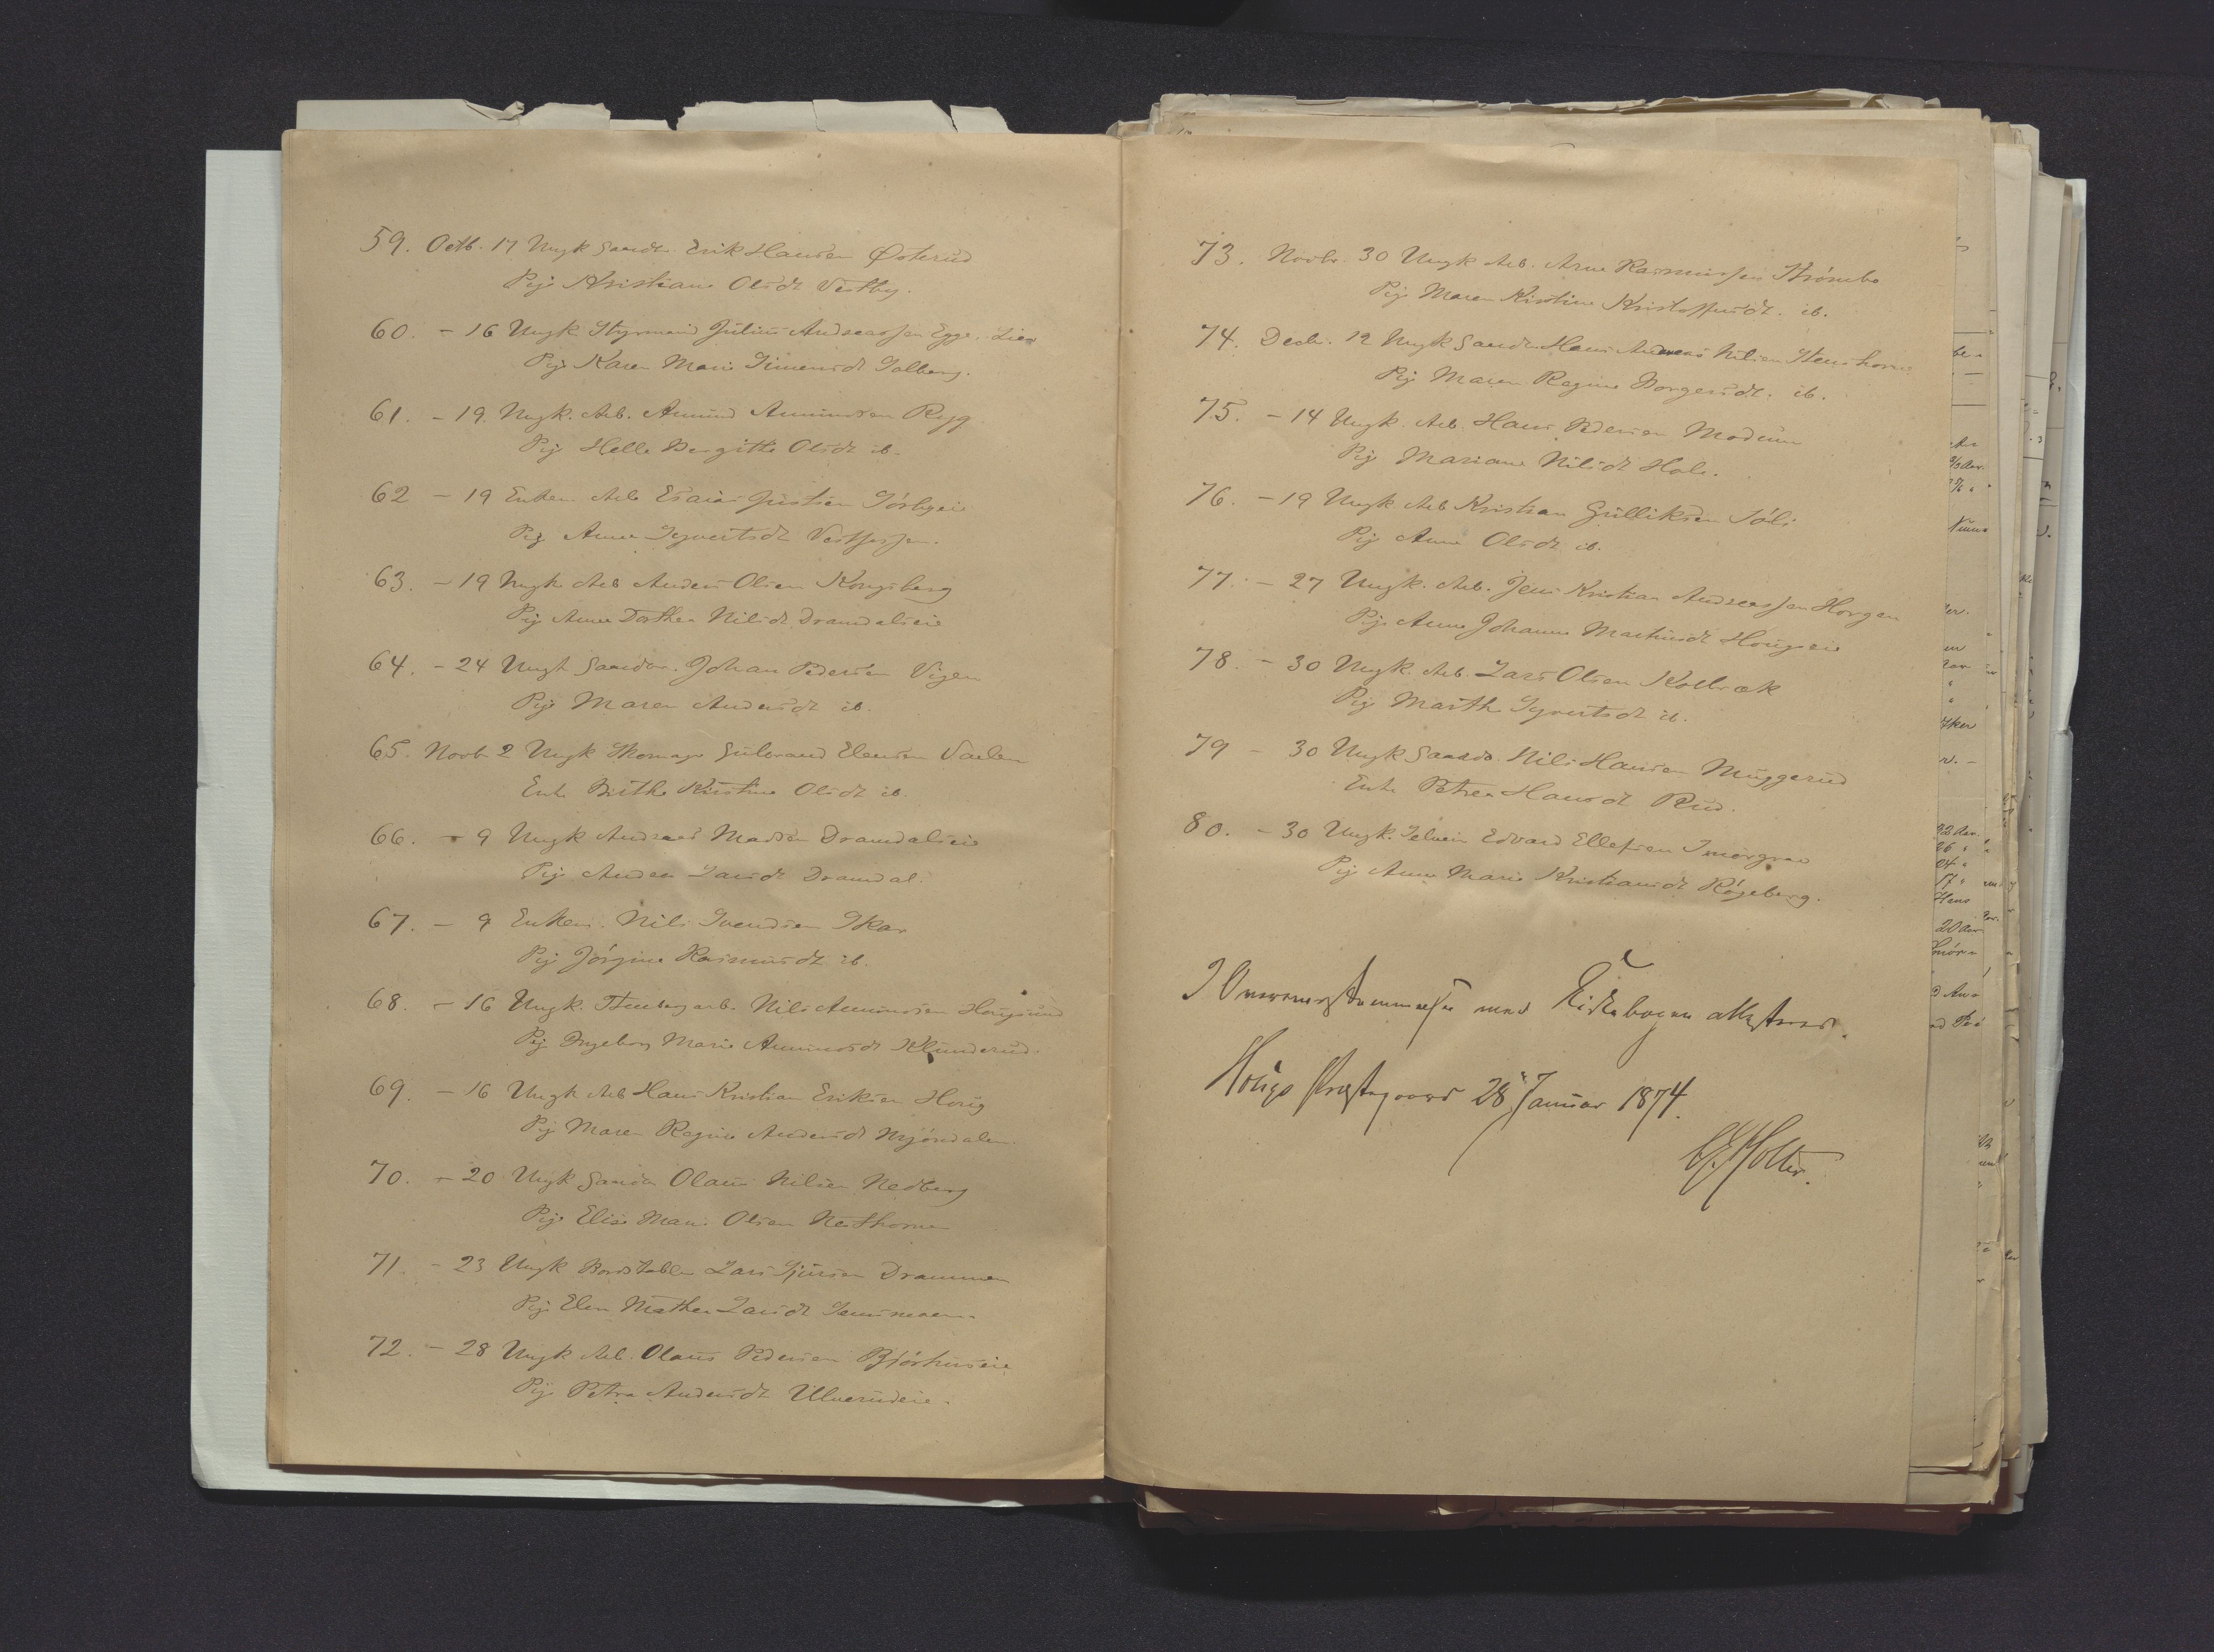 59. Octb. 17 Ungk Gaardr. Erik Hansen Østerud
Pige Kristiane Olsdt Vestby.
60. - 16 Ungk Styrmand Julius Andreassen Egge. Lier
Pige Karen Marie Simensdt Solberg.
61. - 19. Ungk. Arb. Amund Amundsen Rygg
Pige Helle Bergitte Olsdt ib.
62 - 19 Enkem Arb Esaias Justsen
Pig Anne Syvertsdt Vestfossen.
63. - 19 Ungk Arb Anders Olsen Kongsberg
Pig Anne Dorthea Nilsdt Dramdalseie
64. - 24 Ungk Gaardbr. Johan Pedersen Vigen
Pige Maren Andersdt ib.
65. Novb 2 Ungk Skomagr Gulbrand Elensen
Enke Birthe Kirstine Olsdt ib.
66. - 9 Ungk Andreas Madsen Dramdalseie
Pig Andrea Larsdt Dramdal.
67. - 9 Enkem. Nils Svendsen Skar
Pig Jörgine Rasmusdt ib.
68. - 16 Ungk. Nils Amundsen Hougsund
Pig Ingeborg Marie Amundsdt Klunderud.
69. - 16 Ungk Arb Hans Kristian Eriksen Houg
Pig Maren Regine Andersdt Mjöndalen.
70. - 20 Ungk Gaardr Olaus Nilsen Nedberg
Pige Elise Marie Olsen
71. - 23 Ungk Bordstabler Lars Sjursen Drammen
Pige Elen Mathea Larsdt
72. - 28 Ungk Arb. Olaus Pedersen
Pige Petra Andersdt Ulverudeie.
73. Novbr. 30 Ungk Arb. Arne Rasmussen Strömbo
Pig Maren Kirstine Kristoffersdt. ib.
74. Decb. 12 Ungk Gaardr Hans Andreas Nilsen Stenshorne
Pig Maren Regine Borgersdt. ib.
75. - 14 Ungk. Arb. Hans Pedersen Modum
Pig Mariane Nilsdt Hals.
76. - 19 Ungk Arb Kristian Gulliksen Söli
Pig Anne Olsdt ib.
77. - 27 Ungk. Arb. Jens Kristian Andreassen Horgen
Pige Anne Johanne Martinsdt Hougseie
78. - 30 Ungk. Arb. Lars Olsen Kolbræk
Pig Marthe Syvertsdt ib.
79 - 30 Ungk Gaardb. Nils Hansen Muggerud
Enke Petrea Hansdt Rud.
80. - 30 Ungk. Selvei Edvard Ellefsen Smörgrav
Pig Anne Marie Kristiansdt Rögeberg.
I Overensstemmelse med Kirkebogen attesteres.
Hougs Præstegaard 28 Januar 1874.
Holter.